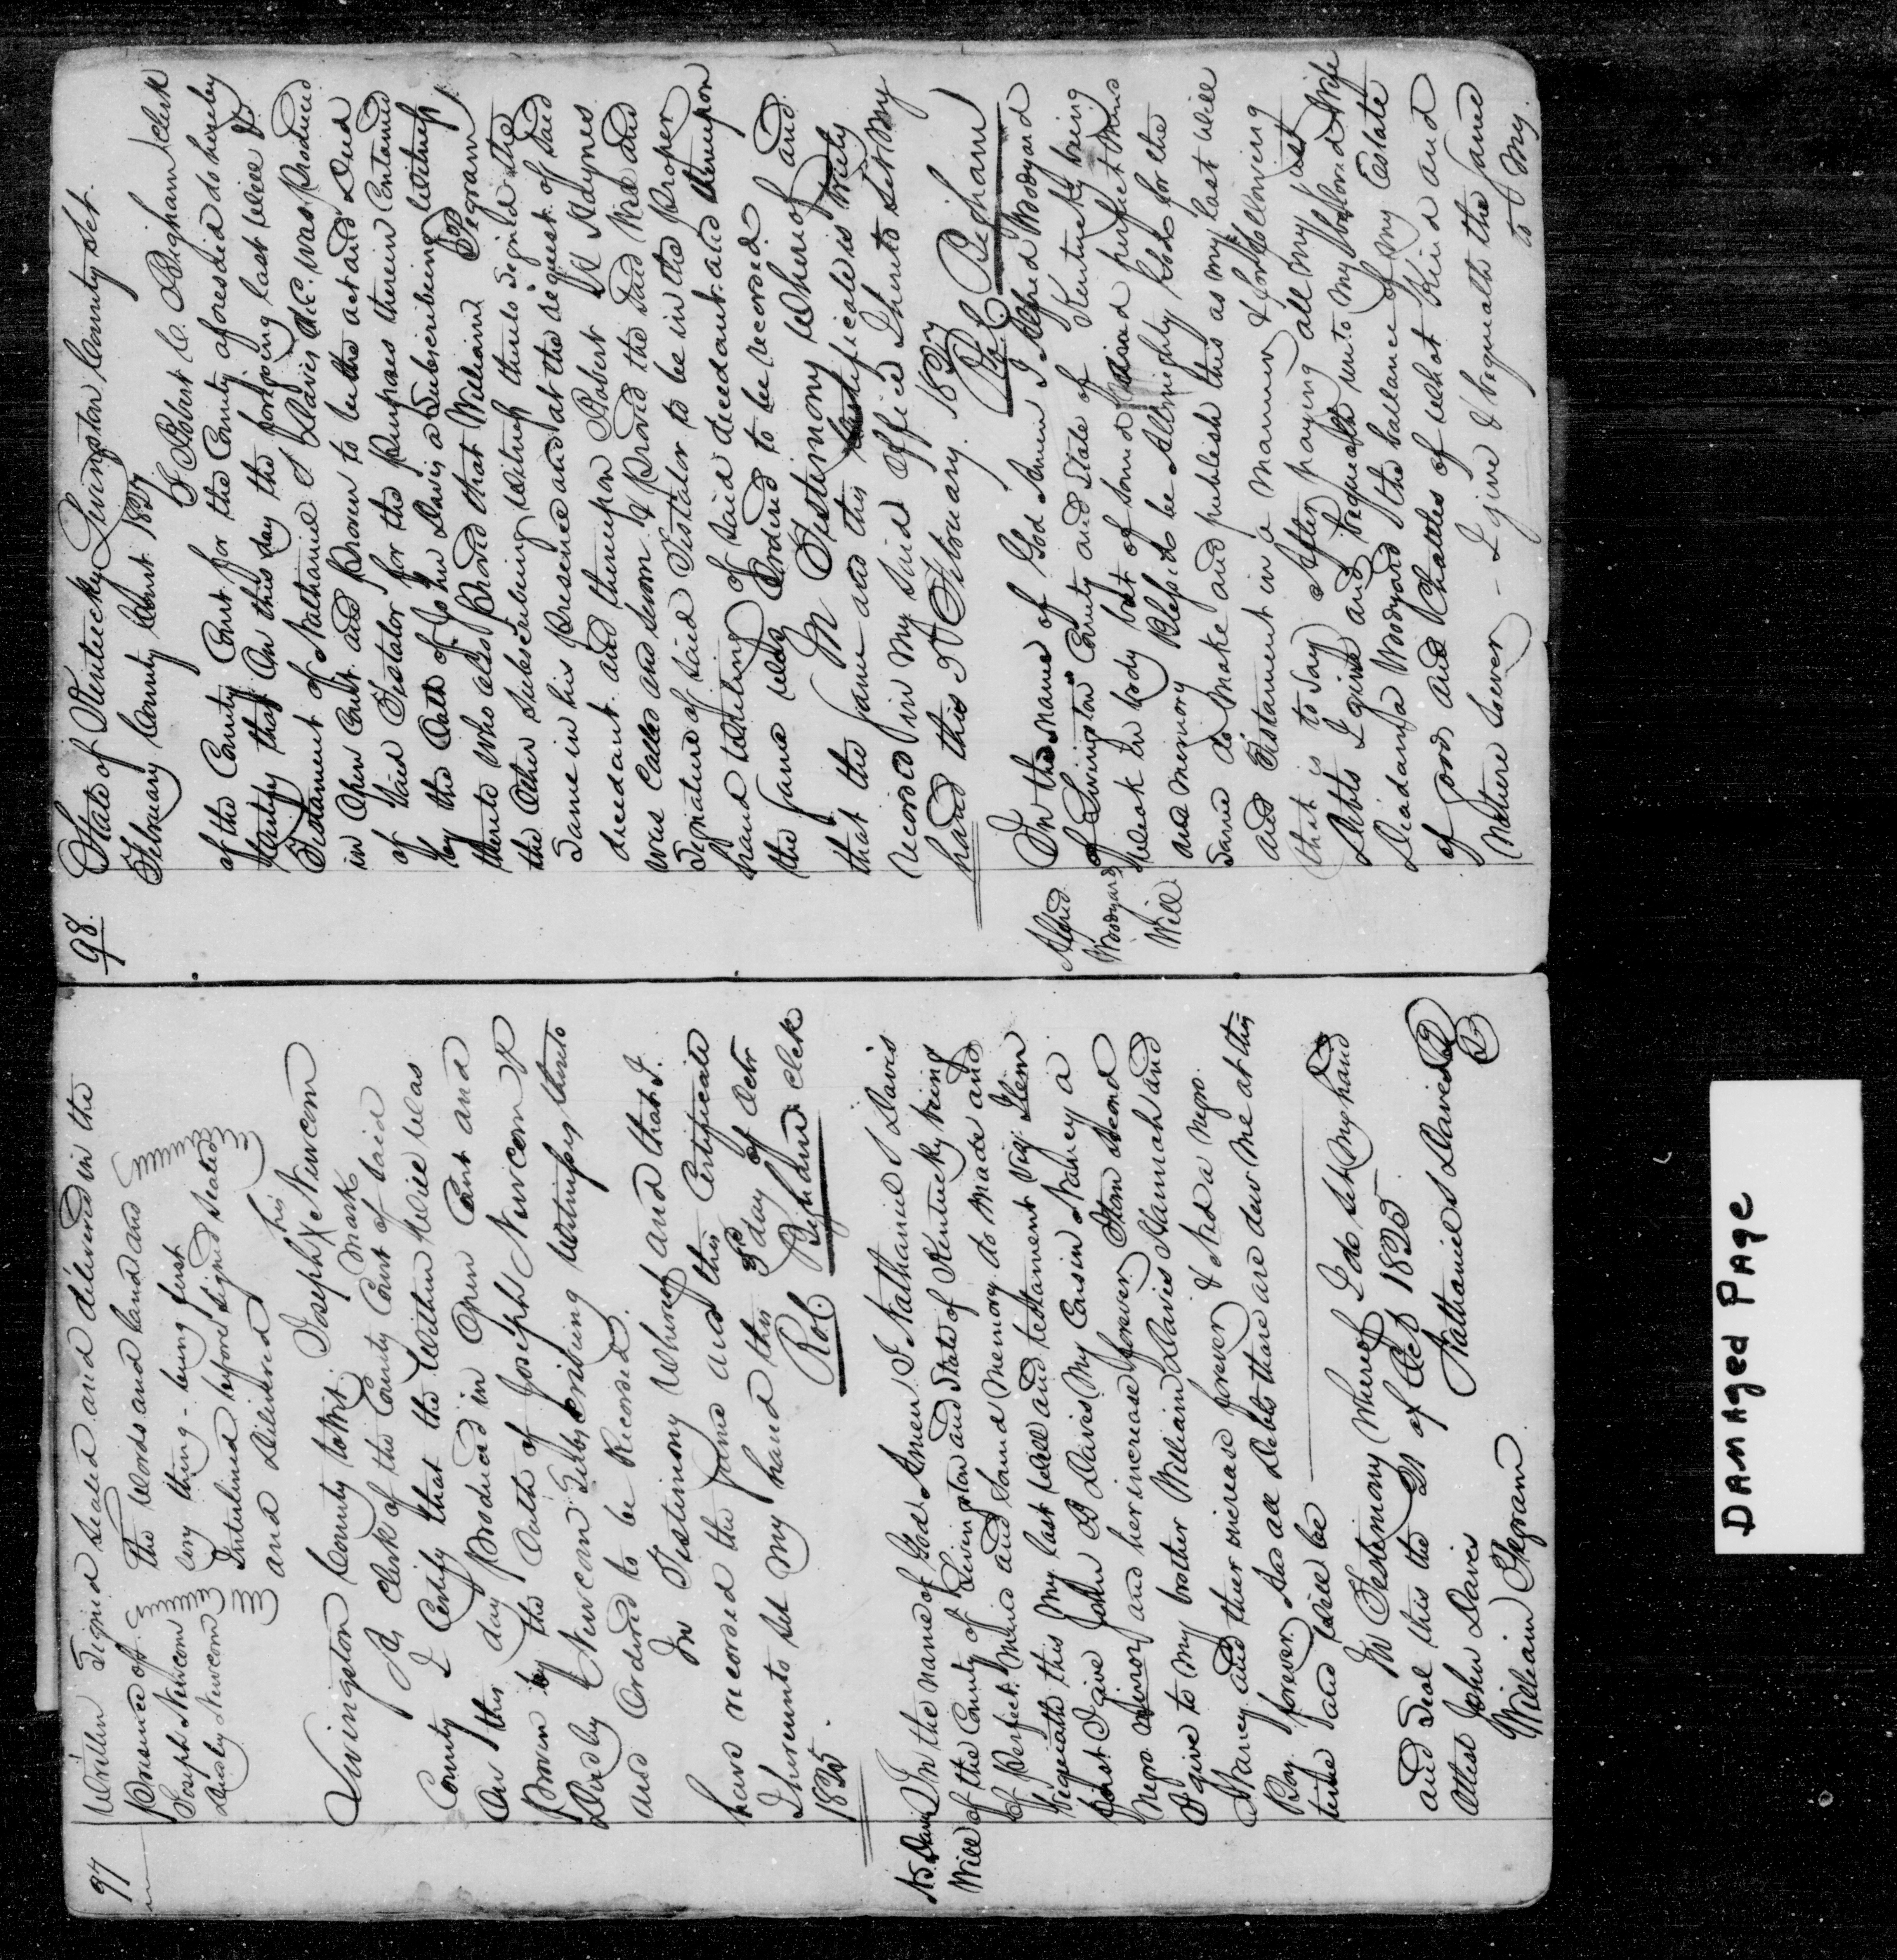 97
Written Signed Sealed and delivered in the
presence of The words and land and
Joseph Newcom being first
Interlined before signed Sealed
Dudley Newcom and Delivered
his
Joseph X Newcom
mark
Livingston County to wit.
As Clerk of the County Court of said
County I Certify that the Within Will was
On this day Produced in Open Court and
Proven by the Oath of Joseph Newcom &
Dudley Newcom Subscribing Witnesses thereto
and Ordered to be Recorded.
In Testimony Whereof and that I
have recorded the same and this Certificate
I hereunto set my hand this 3d day of Octr
1825. Rob. Bigham Clek
N S Davis
Will
In the name of God Amen I Nathaniel S Davis
of the County of Livingston and State of Kentucky being
of Perfect Mind and Sound Memory do Make and
bequeath this My last Will and testament Viz. Item
first I Give John D Davis My Cousin Nancy a
Negro and her increase forever. Item second
I give to my brother William Davis Hannah and
Nancy and their increase forever & Ned a Negro
Boy forever. And all Debts there are due Me at this
time and will be
In Testimony Whereof I do set My hand
and Seal this the 21 of Oct 1825
Attest John Davis Nathaniel S Davis
William Pegram
98.
State of Kentucky Livingston County Sct.
February County Court 1827
I Robert C. Bigham Clerk
of the County Court for the County aforesaid do hereby
Certify that On this day the forgoing last Will &
Testament of Nathaniel S Davis Decd. was Produced
in Open Court and Proven to be the act and Deed
of Said Testator for the Purposes therein Contained
by the Oath of John Davis a Subscribeing Witness
thereto who also Proved that William Pegram
the Other Subscribeing Witness thereto Signed the
Same in his Presence and at the request of said
decedant. and thereupon Robert Haynes
was Called and sworn & Proved the said Will and
Signature of said Testator to be in the Proper
hand Writeing of said decedant. and thereupon
the same was Ordered to be recorded
In Testimony Whereof and
that the same and this Certificate is truly
record in my said office I hereunto set My
hand this February. 1827
R C Bigham
Alfred
Woodyard
Will
In the Name of God Amen I Alfred Woodyard
of Livingston County and State of Kentucky being
Weak in body but of Sound and perfect mind
and memory Blessed be Allmighty God for the
Same do Make and publish this as my last Will
and Testament in a Manner & form following
(that is to say) After paying all My just
Debts I give and bequeath unto My beloved Wife
Deidama Woodyard the ballance of my Estate
of goods and Chattles of what Kind and
Nature Soever - I give & bequeath the same
to My
Damaged Page